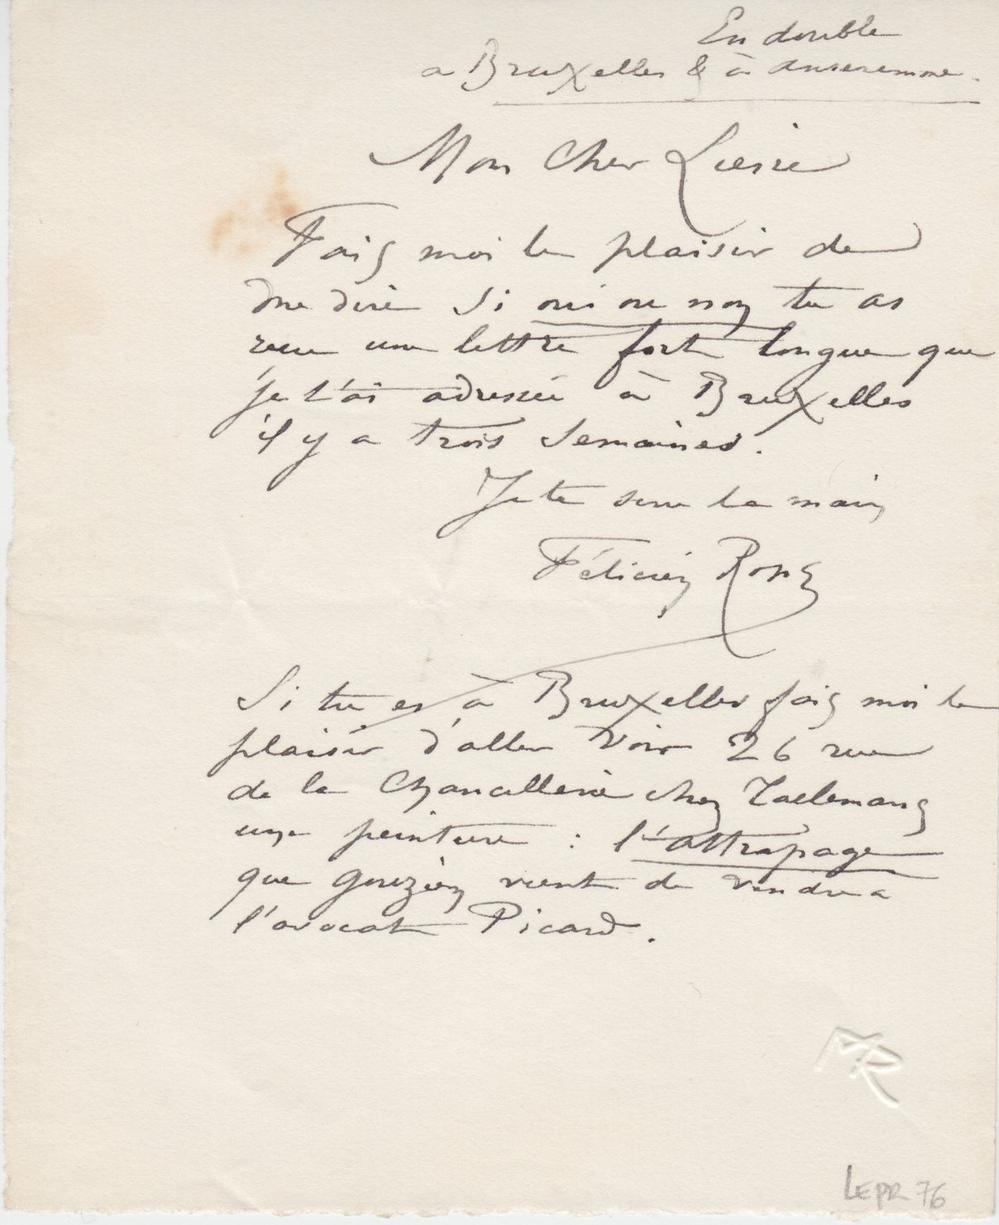 En double
a Bruxelles & à Anseremme.
Mon Cher Liesse
Fais moi le plaisir de
me dire si oui ou non tu as
reçu une lettre fort longue que
je t'ai adressée à Bruxelles
il y a trois Semaines.
Je te serre la main,
Félicien Rops
Si tu es à Bruxelles fais moi le
plaisir d'aller voir 26 rue
de la Chancellerie chez Taelemans
une peinture : l'attrapage
que j'ai vient de vendre a
l'avocat Picard.
LEPR 76